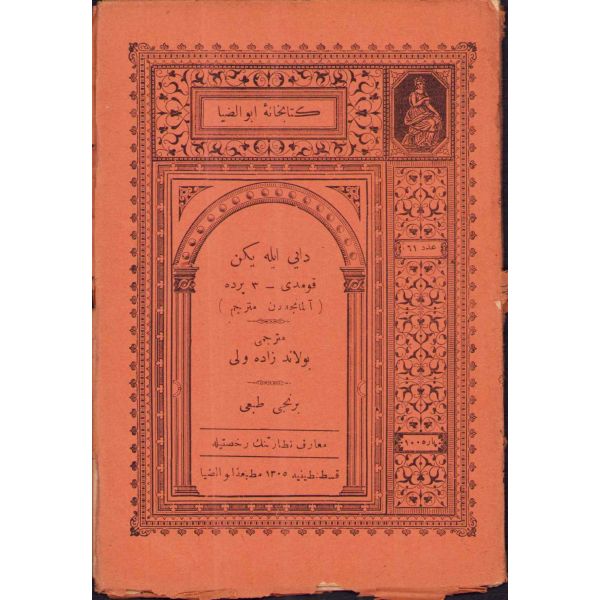 كتابخانۀ ابوالضيا
عدد ٦١
دايى ايله يكن
قومدى – ٣ پرده
( آلمانجه‌دن مترجم )
مترجمى
بولاند زاده ولى
برنجى طبعى
معارف نظارتنك رخصتيله
قسطنطينيه ١٣٠٥ مطبعۀ ابوالضيا